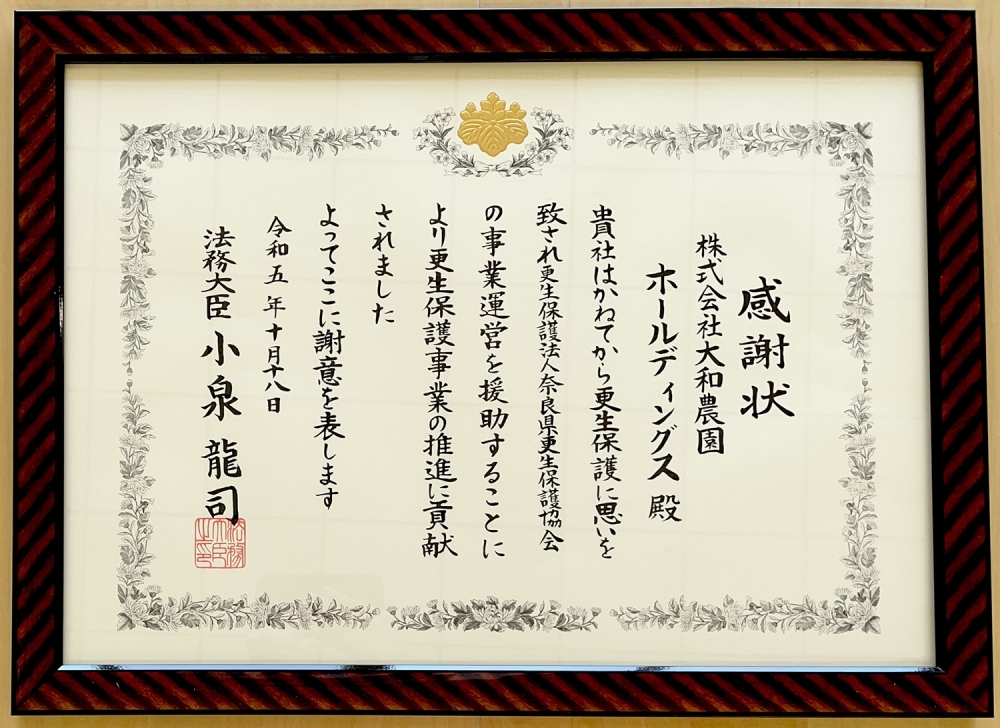 感謝状
株式会社大和農園
ホールディングス 殿
貴社はかねてから更生保護に思いを
致され更生保護法人奈良県更生保護協会
の事業運営を援助することに
より更生保護事業の推進に貢献
されました
よってここに謝意を表します
令和五年十月十八日
法務大臣 小泉 龍司
法務大臣之印